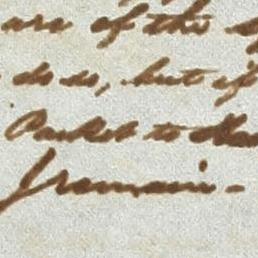 are of the
do so, but if
Packet to
I remain -